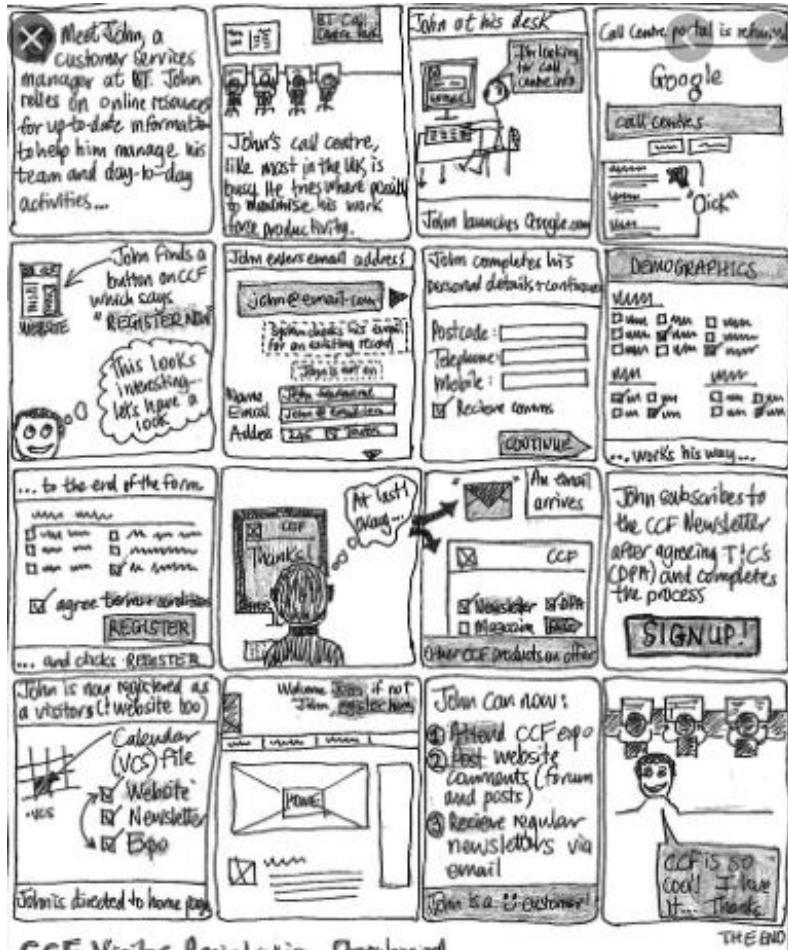 Meet John, a
customer services
manager at BT. John
relies on online resources
for up-to-date information
to help him manage his
team and day-to-day
activities...
BT Call
Centre
John's call centre,
like most in the UK, is
busy. He tries where possible
to maximise his work
force productivity.
John at his desk
I'm looking
for call
centre info
John launches Google.com
Call Centre portal is
Google
call centres
"Click"
John finds a
button on CCF
which says
"REGISTER NOW"
WEBSITE
This looks
interesting...
let's have a
look
John enters email address
john@email.com
System checks his email
for an existing record
John is not on
Name
Email John@email.com
Address
John completes his
personal details + continues
Postcode:
Telephone:
Mobile:
Recieve comms
CONTINUE
DEMOGRAPHICS
... works his way...
... to the end of the form
agree terms + conditions
REGISTER
... and clicks REGISTER
CCF
Thanks!
At last!
okay...
An email
arrives
CCF
Newsletter DPA
Magazine
Other CCF products on offer
John subscribes to
the CCF Newsletter
after agreeing T&C's
(DPA) and completes
the process
SIGN UP!
John is now registered as
a visitors (+ website too)
Calendar
(VCS) file
Website
Newsletter
Expo
.VCS
John is directed to home page
Welcome John if not
John, register here
HOME
John can now:
1 Attend CCF expo
2 Post website
comments (forum
and posts)
3 Recieve regular
newsletters via
email
John is a customer!
CCF is so
cool! I love
it... Thanks
THE END
CCF Visitor Registration